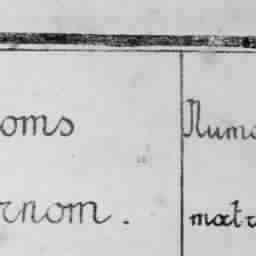 oms Numo
rnom. matr